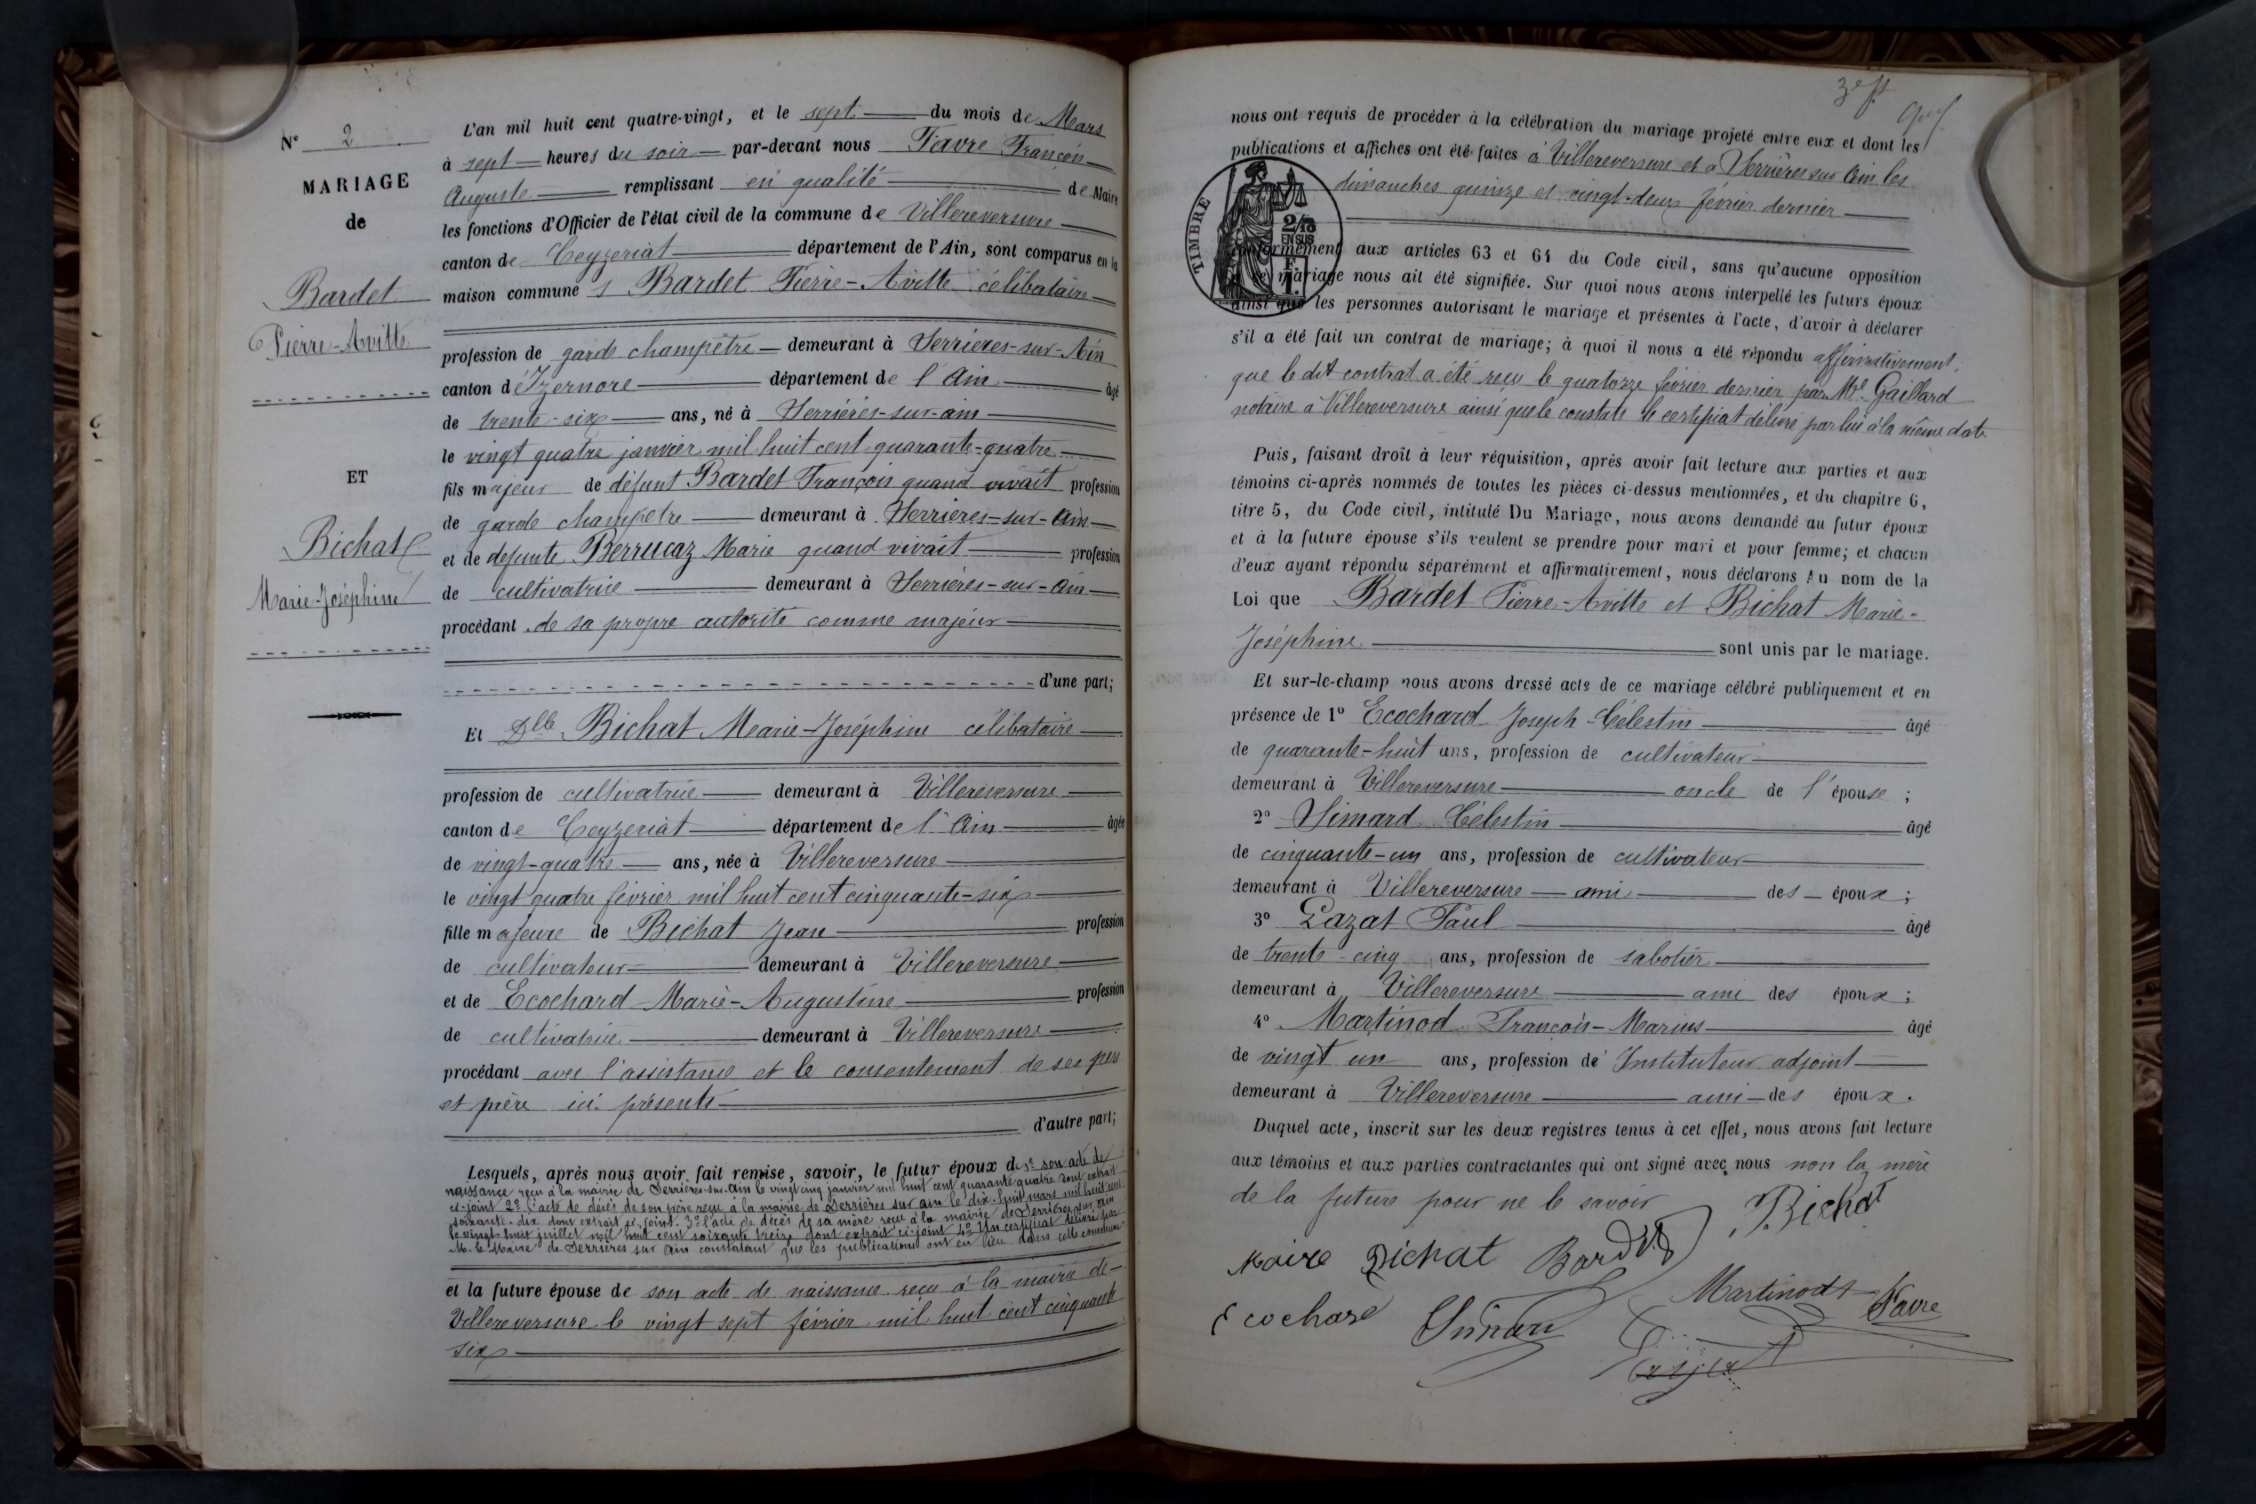 N° 2
MARIAGE
de
Bardet
Pierre-Avitte
ET
Bichat
Marie-Joséphine
L'an mil huit cent quatre-vingt, et le sept du mois de Mars
à sept heures du soir par-devant nous Favre François
Auguste remplissant en qualité de Maire
les fonctions d'Officier de l'état civil de la commune de Villereversure
canton de Ceyzeriat département de l'Ain, sont comparus en la
maison commune s Bardet Pierre-Avitte célibataire
profession de garde champêtre demeurant à Serrières-sur-Ain
canton d'Izernore département de l'Ain âgé
de trente-six ans, né à Serrières-sur-ain
le vingt quatre janvier mil huit cent quarante-quatre
fils majeur de défunt Bardet François quand vivait profession
de garde champetre demeurant à Serrières-sur-Ain
et de defunte Berrucaz Marie quand vivait profession
de cultivatrice demeurant à Serrières-sur-Ain
procédant de sa propre autorité comme majeur
d'une part;
Et Dlle Bichat Marie-Joséphine célibataire
profession de cultivatrice demeurant à Villereversure
canton de Ceyzeriat département de l'Ain âgée
de vingt-quatre ans, née à Villereversure
le vingt quatre février mil huit cent cinquante-six
fille majeure de Bichat Jean profession
de cultivateur demeurant à Villereversure
et de Ecochard Marie-Augustine profession
de cultivatrice demeurant à Villereversure
procédant avec l'assistance et le consentement de ses père
et mère ici présents
d'autre part;
Lesquels, après nous avoir fait remise, savoir, le futur époux de 1° son acte de
naissance reçu à la mairie de Serrières-sur-Ain le vingt cinq janvier mil huit cent quarante quatre dont extrait
ci-joint 2° l'acte de décès de son père reçu à la mairie de Serrières sur ain le dix-huit mars mil huit cent
soixante-dix dont extrait ci-joint. 3° l'acte de décès de sa mère reçu à la mairie de Serrières sur ain
le vingt-huit juillet mil huit cent soixante treize dont extrait ci-joint 4° Un certificat délivré par
M. le Maire de Serrières sur Ain constatant que les publications ont eu lieu dans cette commune
et la future épouse de son acte de naissance reçu à la mairie de
Villereversure le vingt sept février mil huit cent cinquante
six
nous ont requis de procéder à la célébration du mariage projeté entre eux et dont les
publications et affiches ont été faites à Villereversure et à Serrières sur Ain les
dimanches quinze et vingt-deux février dernier
TIMBRE
2/10
EN SUS
1 F.
conformément aux articles 63 et 64 du Code civil, sans qu'aucune opposition
mariage nous ait été signifiée. Sur quoi nous avons interpellé les futurs époux
ainsi que les personnes autorisant le mariage et présentes à l'acte, d'avoir à déclarer
s'il a été fait un contrat de mariage; à quoi il nous a été répondu affirmativement,
que le dit contrat a été reçu le quatorze février dernier par Me Gaillard
notaire à Villereversure ainsi que le constate le certificat délivré par lui à la même date
Puis, faisant droit à leur réquisition, après avoir fait lecture aux parties et aux
témoins ci-après nommés de toutes les pièces ci-dessus mentionnées, et du chapitre 6,
titre 5, du Code civil, intitulé Du Mariage, nous avons demandé au futur époux
et à la future épouse s'ils veulent se prendre pour mari et pour femme; et chacun
d'eux ayant répondu séparément et affirmativement, nous déclarons au nom de la
Loi que Bardet Pierre-Avitte et Bichat Marie-
Joséphine sont unis par le mariage.
Et sur-le-champ nous avons dressé acte de ce mariage célébré publiquement et en
présence de 1° Ecochard Joseph-Célestin âgé
de quarante-huit ans, profession de cultivateur
demeurant à Villereversure oncle de l'épouse ;
2° Simard Célestin âgé
de cinquante-un ans, profession de cultivateur
demeurant à Villereversure ami des époux ;
3° Lazat Paul âgé
de trente-cinq ans, profession de sabotier
demeurant à Villereversure ami des époux ;
4° Martinod François-Marius âgé
de vingt un ans, profession de Instituteur adjoint
demeurant à Villereversure ami des époux.
Duquel acte, inscrit sur les deux registres tenus à cet effet, nous avons fait lecture
aux témoins et aux parties contractantes qui ont signé avec nous non la mère
de la future pour ne le savoir
Bichat
Marie Bichat Bardet
Martinod Favre
Ecochard Simard